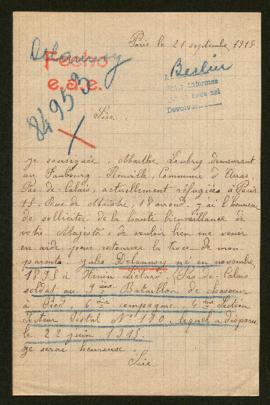 Paris le 21 septembre 1915
Delaunay
Fecho
e.s.e.
Berlin
84953
Sire,
Je soussignée, Marthe Loubry demeurant
au Faubourg Ronville, Commune d'Arras
Pas-de-Calais, actuellement réfugiée à Paris
15, Rue de 18 arront, j'ai l'honneur
de solliciter de la haute bienveillance de
votre Majesté de vouloir bien me venir
en aide pour retrouver la trace de mon
parent: Jules Delaunay né en novembre
1895 à Hénin Liétard (Pas-de-Calais
soldat au Bataillon de chasseurs
à Pied compagnie, 4ème Section
Secteur Postal No 190, lequel a disparu
le 22 juin 1915.
Je serai heureuse,
Sire